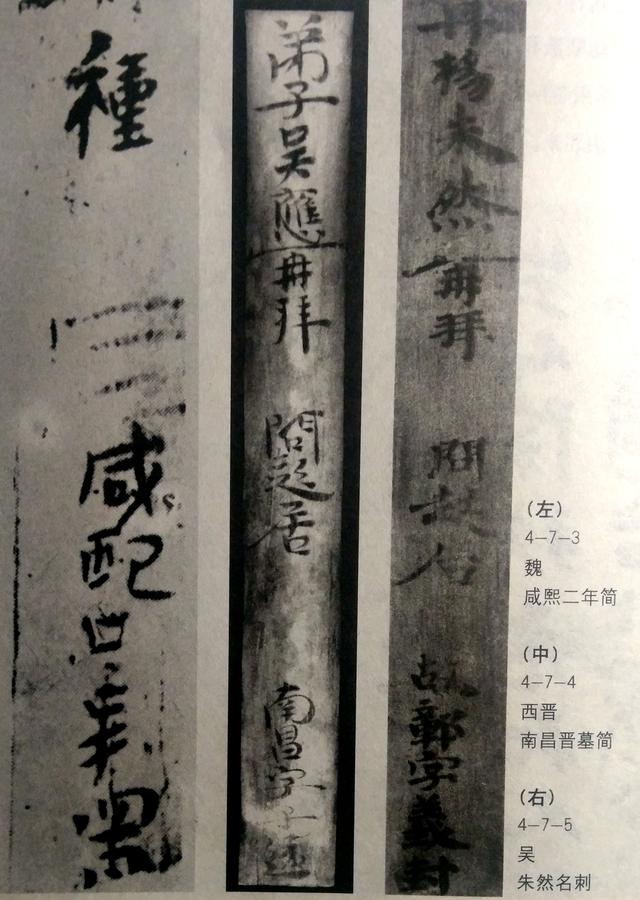 種
咸熙
弟子吳應再拜
問起居
南昌字子遠
丹楊朱然再拜
問起居
故鄣字義封
（左）
4—7—3
魏
咸熙二年简
（中）
4—7—4
西晋
南昌晋墓简
（右）
4—7—5
吴
朱然名刺